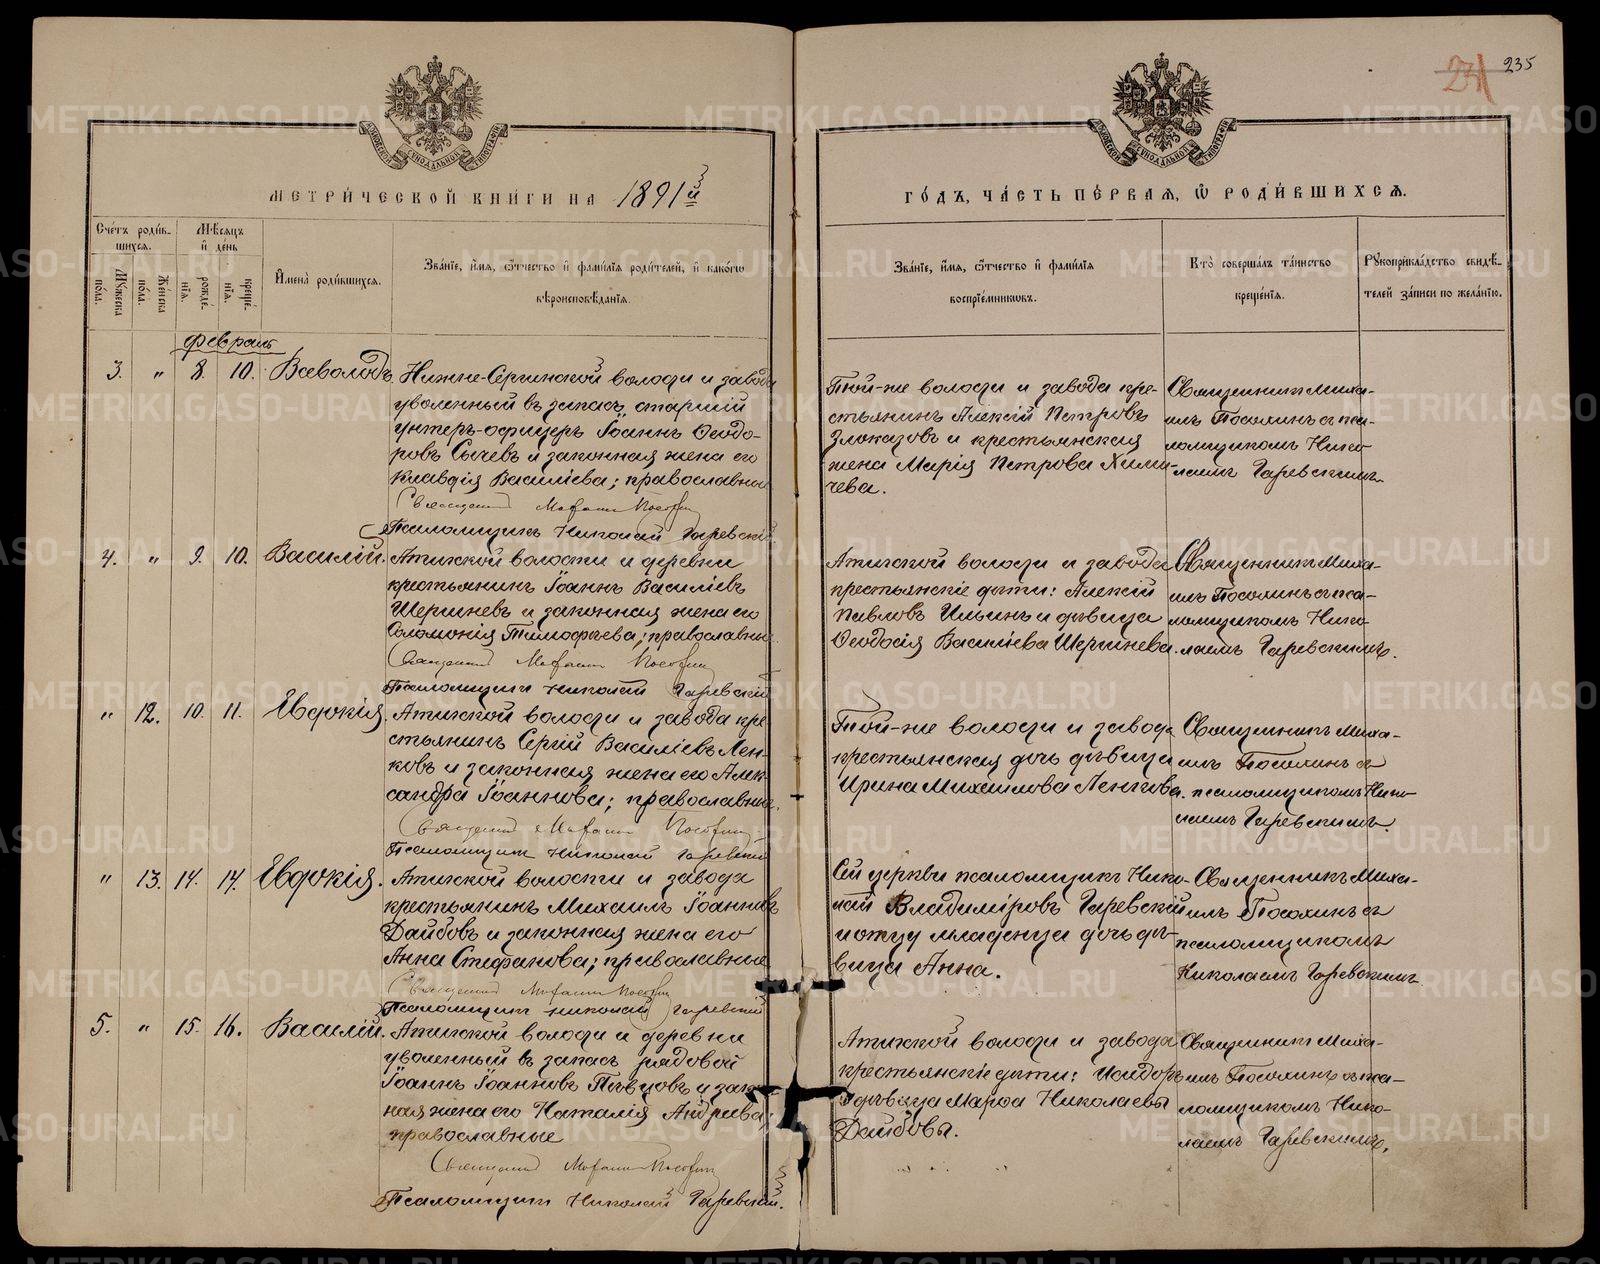 231 235
МОСКОВСКОЙ СѴНОДАЛЬНОЙ ТИПОГРАФІИ
МОСКОВСКОЙ СѴНОДАЛЬНОЙ ТИПОГРАФІИ
МЕТРИ́ЧЕСКОЙ КНИ́ГИ НА 1891й
ГО́ДЪ, ЧА́СТЬ ПЕ́РВАЯ, Ѡ РОДИ́ВШИХСЯ.
Сче́тъ роди́в-
шихся.
Мѣ́сяцъ
и́ де́нь
Му́жеска
по́ла.
Же́нска
по́ла.
рожде́-
нїя.
креще́-
нїя.
И҆мена̀ роди́вшихся.
Зва́нїе, и҆́мя, ѻ҆́тчество и҆ фами́лїя роди́телей, и҆ како́гѡ
вѣроисповѣ́данїя.
Зва́нїе, и҆́мя, ѻ҆́тчество и҆ фами́лїя
воспрїе́мникѡвъ.
Кто̀ соверша́лъ та́инство
креще́нїя.
Рꙋкоприкла́дство свидѣ́-
телей за́писи по жела́нїю.
Февраль
3. " 8. 10. Всеволодъ.
Нижне-Сергинской волости и завода
уволенный въ запасъ старшій
унтеръ-офицеръ Іоаннъ Ѳеодо-
ровъ Сычевъ и законная жена его
Клавдія Василіева; православные
Священник Михаил Посохин
Псаломщикъ Николай Гаревскій
Той-же волости и завода кре-
стьянинъ Алексій Петровъ
Злоказовъ и крестьянская
жена Марія Петрова Хими-
чева.
Священникъ Миха-
илъ Посохинъ съ пса-
ломщикомъ Нико-
лаемъ Гаревскимъ.
4. " 9. 10. Василій.
Атигской волости и деревни
крестьянинъ Іоаннъ Василіевъ
Шершневъ и законная жена его
Соломонія Тимофѣева; православные.
Священник Михаил Посохин
Псаломщикъ Николай Гаревскій
Атигской волости и завода
крестьянскіе дѣти: Алексій
Павловъ Ильинъ и дѣвица
Ѳеодосія Васильева Шершнева.
Священникъ Миха-
илъ Посохинъ съ пса-
ломщикомъ Нико-
лаемъ Гаревскимъ.
" 12. 10. 11. Евдокія.
Атигской волости и завода кре-
стьянинъ Сергій Василіевъ Лен-
ковъ и законная жена его Алек-
сандра Іоаннова; православные.
Священник Михаил Посохин
Псаломщикъ Николай Гаревскій
Той-же волости и завода
крестьянская дочь дѣвица
Ирина Михаилова
Священникъ Миха-
илъ Посохинъ съ
псаломщикомъ Нико-
лаемъ Гаревскимъ.
" 13. 14. 14. Евдокія.
Атигской волости и завода
крестьянинъ Михаилъ Іоанновъ
Дайбовъ и законная жена его
Анна Стефанова; православные
Священник Михаил Посохин
Псаломщикъ Николай Гаревскій
Сей церкви псаломщикъ Нико-
лай Владиміровъ Гаревскій
и отцу младенца дочь дѣ-
вица Анна.
Священникъ Миха-
илъ Посохинъ съ
псаломщикомъ
Николаемъ Гаревскимъ
5. " 15. 16. Василій.
Атигской волости и деревни
уволенный въ запасъ рядовой
Іоаннъ Іоанновъ Пѣвцовъ и закон-
ная жена его Наталія Андреева;
православные
Священник Михаил Посохин
Псаломщикъ Николай Гаревскій.
Атигской волости и завода
крестьянскіе дѣти: Исидоръ
и дѣвица Марѳа Николаевы
Дайбовы.
Священникъ Миха-
илъ Посохинъ съ пса-
ломщикомъ Нико-
лаемъ Гаревскимъ.
METRIKI.GASO-URAL.RU